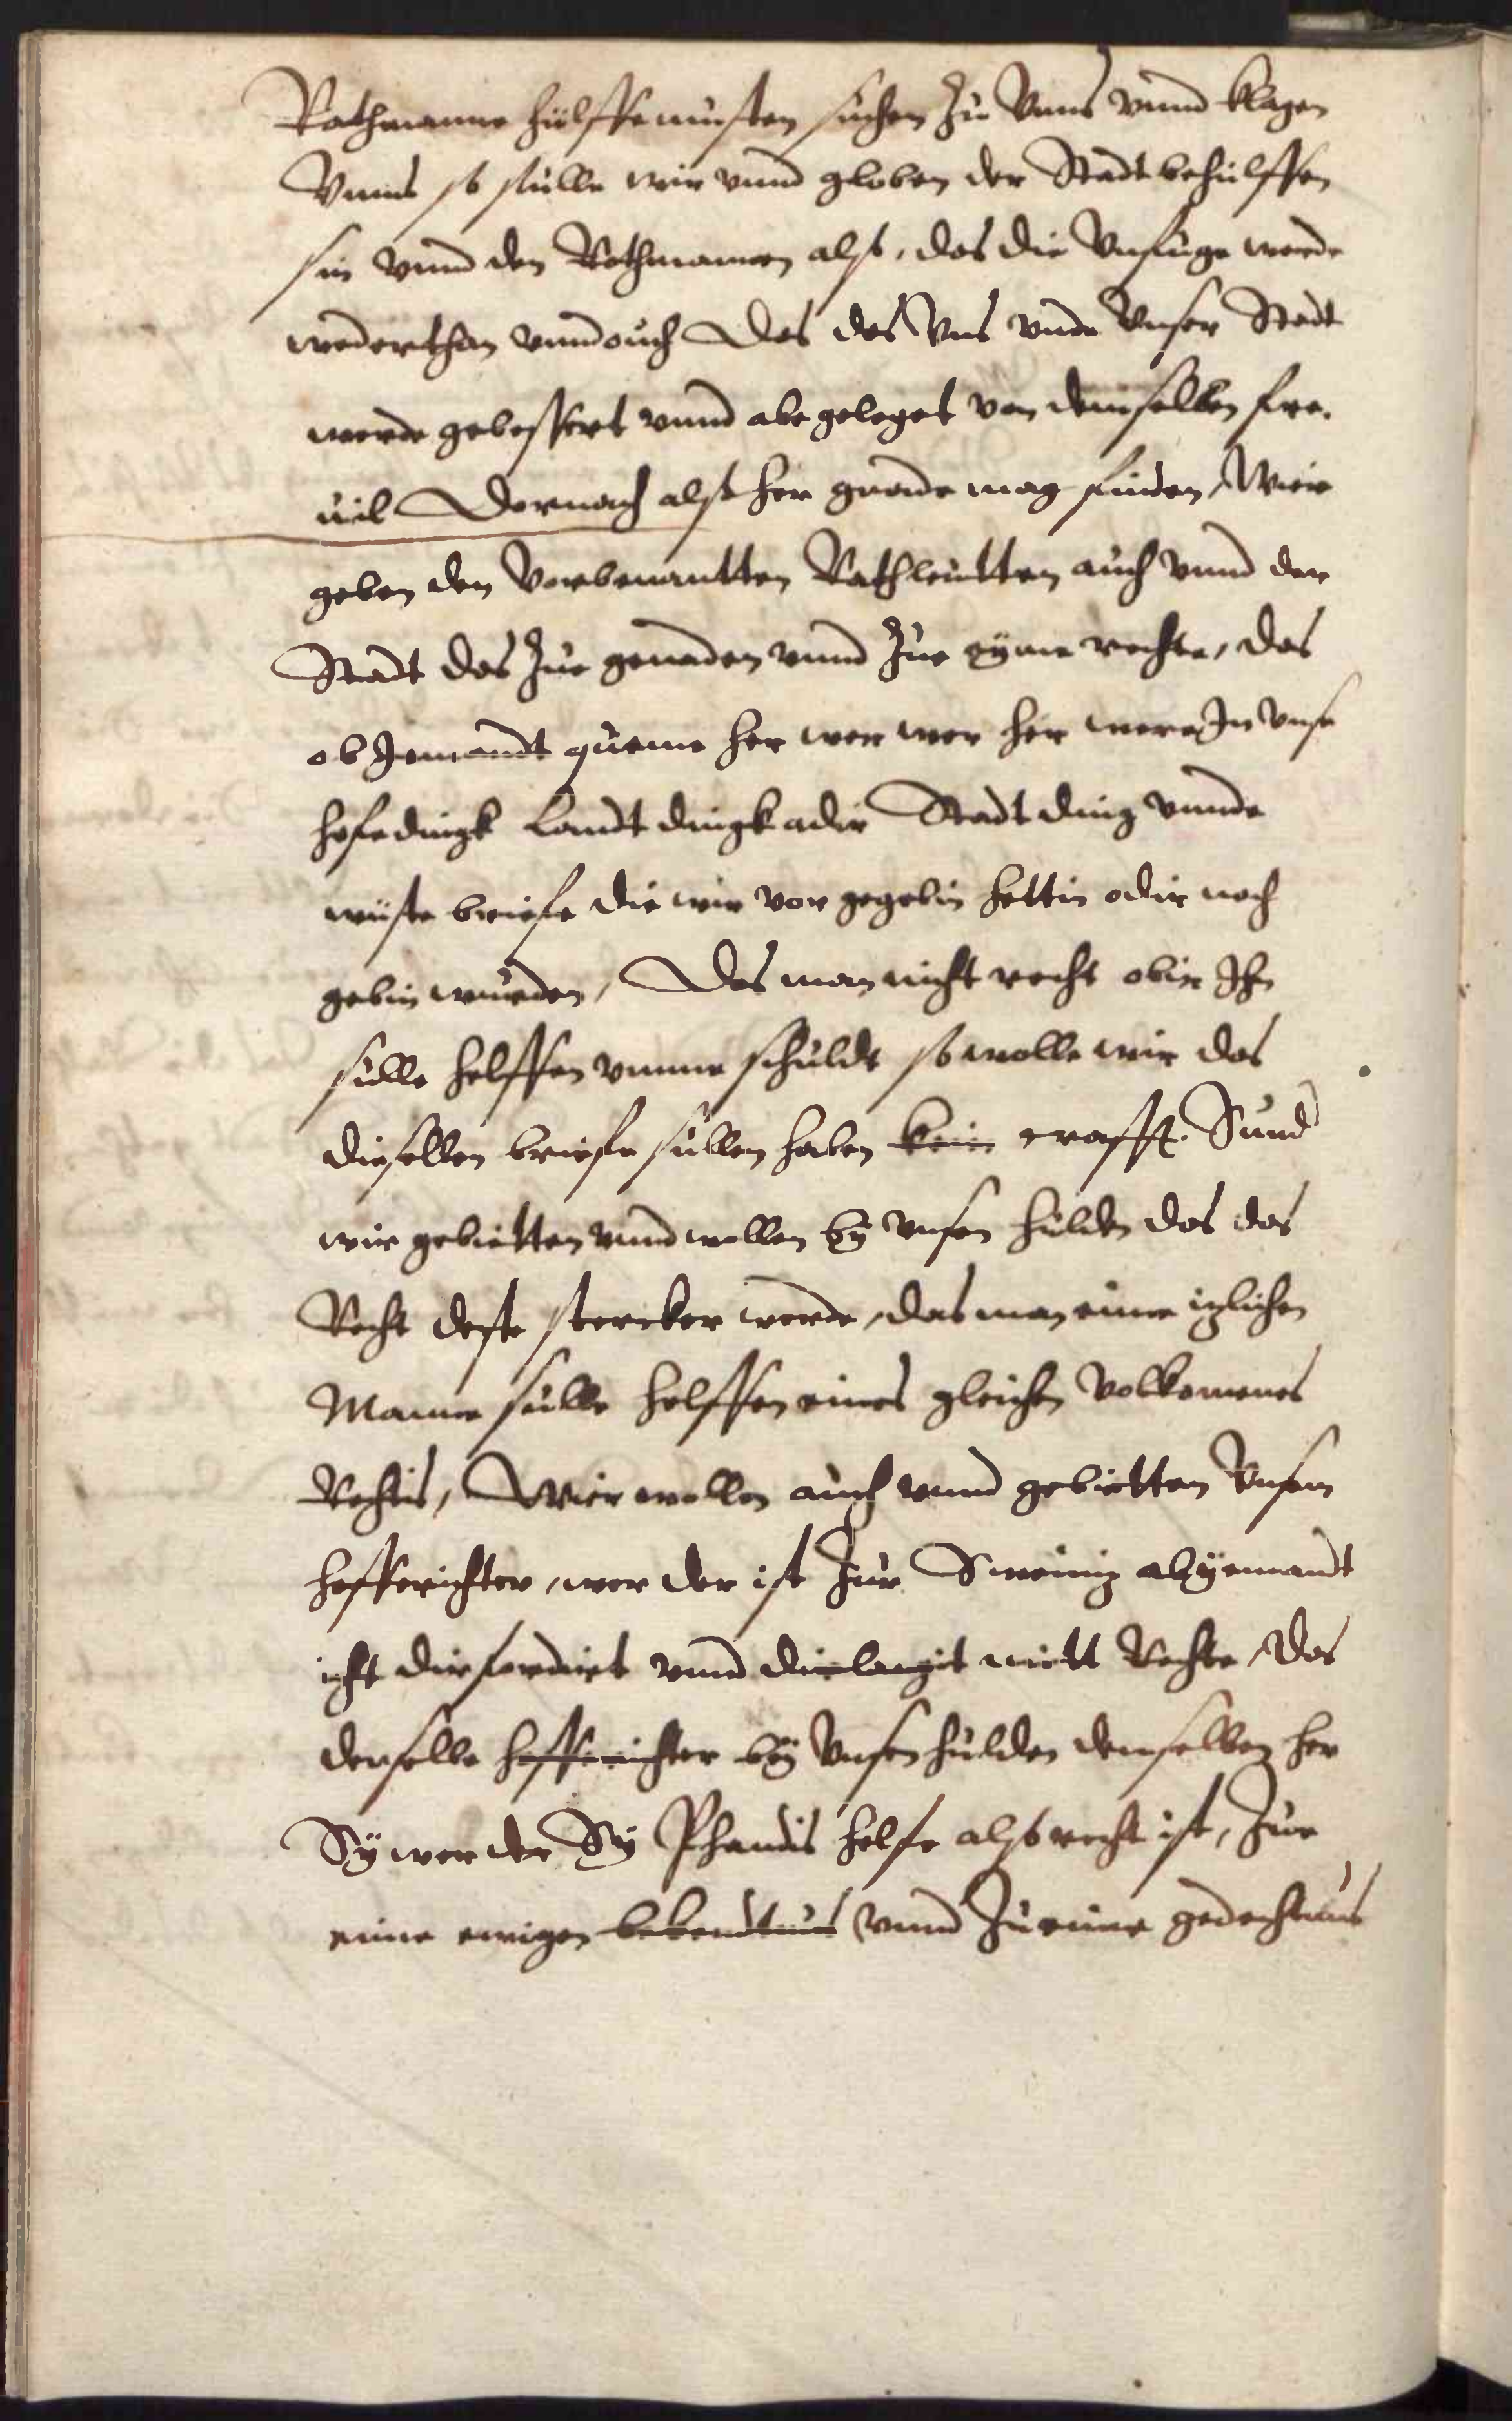 Rathmanne hülffe müsten suchen Zu Vnns vnnd klagen
Vnns so sülle wir vnnd globen der Stadt behülffen
sin vnnd den Rothmannen also, das die Vnfüge werde
wederthan vnnd ouch Das des Vns vnde Vnser Stadt
werde gebessert vnnd abe geleget von demselben fre„
üil Dornoch also her gnade mag finden, Wier
geben den Vorbenantten Rathleutten auch vnnd der
Stadt das Zue genaden vnnd Zue eyme rechte, das
ob Jemandt queme her wer wer her were Jn vnse
hofedingk Landt dingk adir Stadt ding vnnde
wüste briefe die wir vor gegebin hettin odir noch
gebin würden, Das man nicht recht obir Jhn
sülle helffen vmme schuldt so wolle wir das
dieselben briefe süllen haben kein crafft. Sund
wir gebietten vnnd wollen by vnsen hulden das das
Recht deste stercker werde, das man eime izlichen
Manne sulle helffen eines gleichen volkomenes
Rechtis, Wier wollen auch vnnd gebietten Vnsem
hofferichter, wer der ist Zur Sweiniz ab yemandt
icht dirfordirt vnnd dirlangit mitt Rechte, das
derselbe hofferichter by Vnsen hulden demselben her
Sy wer der Sy Phandis helfe also recht ist, Zue
eime ewigen bekendtnus vnnd Zu eime gedechtnus